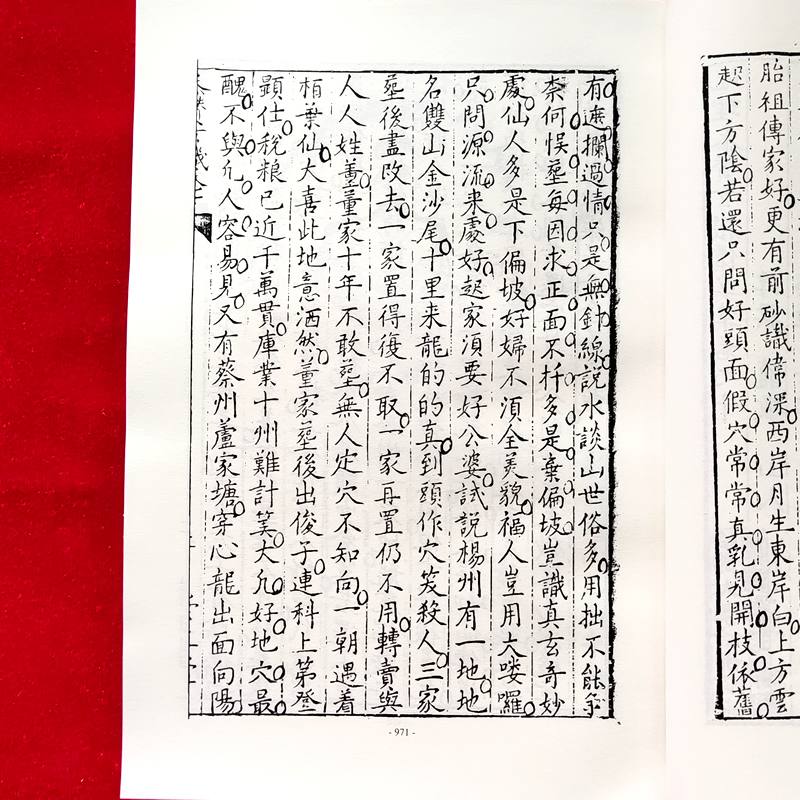 胎祖傳家好更有前砂識偉深西岸月生東岸白上方雲
起下方陰若還只問好頭面假穴常常真乳見開枝依舊
有遮攔過情只是無針線說水談山世俗多用拙不能爭
奈何悞塟每因求正面不扦多是棄偏坡豈識真玄奇妙
處仙人多是下偏坡好婦不湏全美貌福人豈用大嘍囉
只問源流来處好起家湏要好公婆試說楊州有一地地
名雙山金沙尾十里来龍的的真到頭作穴笅殺人三家
塟後盡敗去一家置得復不取一家再置仍不用轉賣與
人人姓董董家十年不敢塟無人定穴不知向一朝遇着
栢葉仙大喜此地意洒然董家塟後出俊子連科上第登
顕仕稅粮已近千萬貫庫業十州難計筭大凢好地穴最
醜不與凢人容易見又有蔡州蘆家塘穿心龍出面向陽
- 971 -